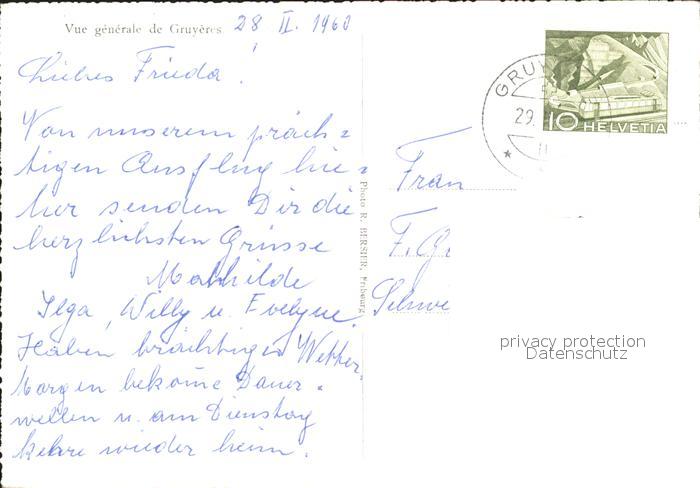 Vue générale de Gruyères 28 II. 1960
Liebes Frieda!
Von unserem präch=
tigen Ausflug hie=
her senden Dir die
herzlichsten Grüsse
Mathilde
Ilga, Willy u. Evelyne.
Haben prächtiges Wetter.
Morgen bekome Dauer=
wellen u. am Dienstag
kehre wieder heim.
Photo R. BERSIER, Fribourg
GRUY
29.
II
10 HELVETIA
Frau
F. G
Schwe
privacy protection
Datenschutz